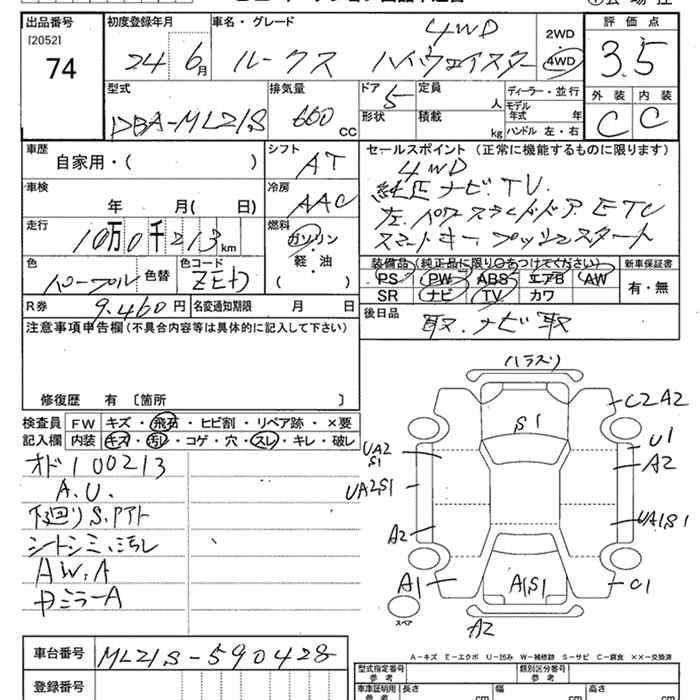 出品番号 初度登録年月 車名・グレード 4WD 2WD 評価点
[2052] 74 24 6月 ルークス ハイウェイスター 4WD 3.5
型式 排気量 ドア 5 定員 人 ディーラー・並行 外装 内装
DBA-ML21S 660 CC 形状 積載 kg モデル年式 年 ハンドル 左・右 C C
車歴 自家用・( ) シフト AT セールスポイント (正常に機能するものに限ります)
4WD
車検 年 月( 日) 冷房 AAC 純正ナビ.TV.
左.パワースライドドア.ETC
走行 10万0千213km 燃料 ガソリン・軽・油 ( ) スマートキー.プッシュスタート
色 パープル 色替 色コード ZED 装備品 (純正品に限り○をつけてください) 新車保証書
PS PW ABS エアB AW 有・無
R券 9.460円 名変通知期限 月 日 SR ナビ TV カワ
注意事項申告欄(不具合内容等は具体的に記入して下さい) 後日品 取.ナビ取
修復歴 有 [箇所 ]
検査員 FW キズ・飛石・ヒビ割・リペア跡・×要
記入欄 内装 キズ・汚レ・コゲ・穴・スレ・キレ・破レ
オド100213
A.U.
下廻りS.
シートシミ.汚レ
AW.A
ミラーA
(ハラス)
C2 A2
S1
UA2 S1
U1
A2
UA2S1
UA1S1
A2
A1
A1S1
C1
スペア
A2
A-キズ E-エクボ U-凹み W-補修跡 S-サビ C-腐食 ××-交換済
車台番号 ML21S-590428 型式指定番号 参考 類別区分番号 参考
登録番号 車庫証明用 参考 長さ cm 幅 cm 高さ cm